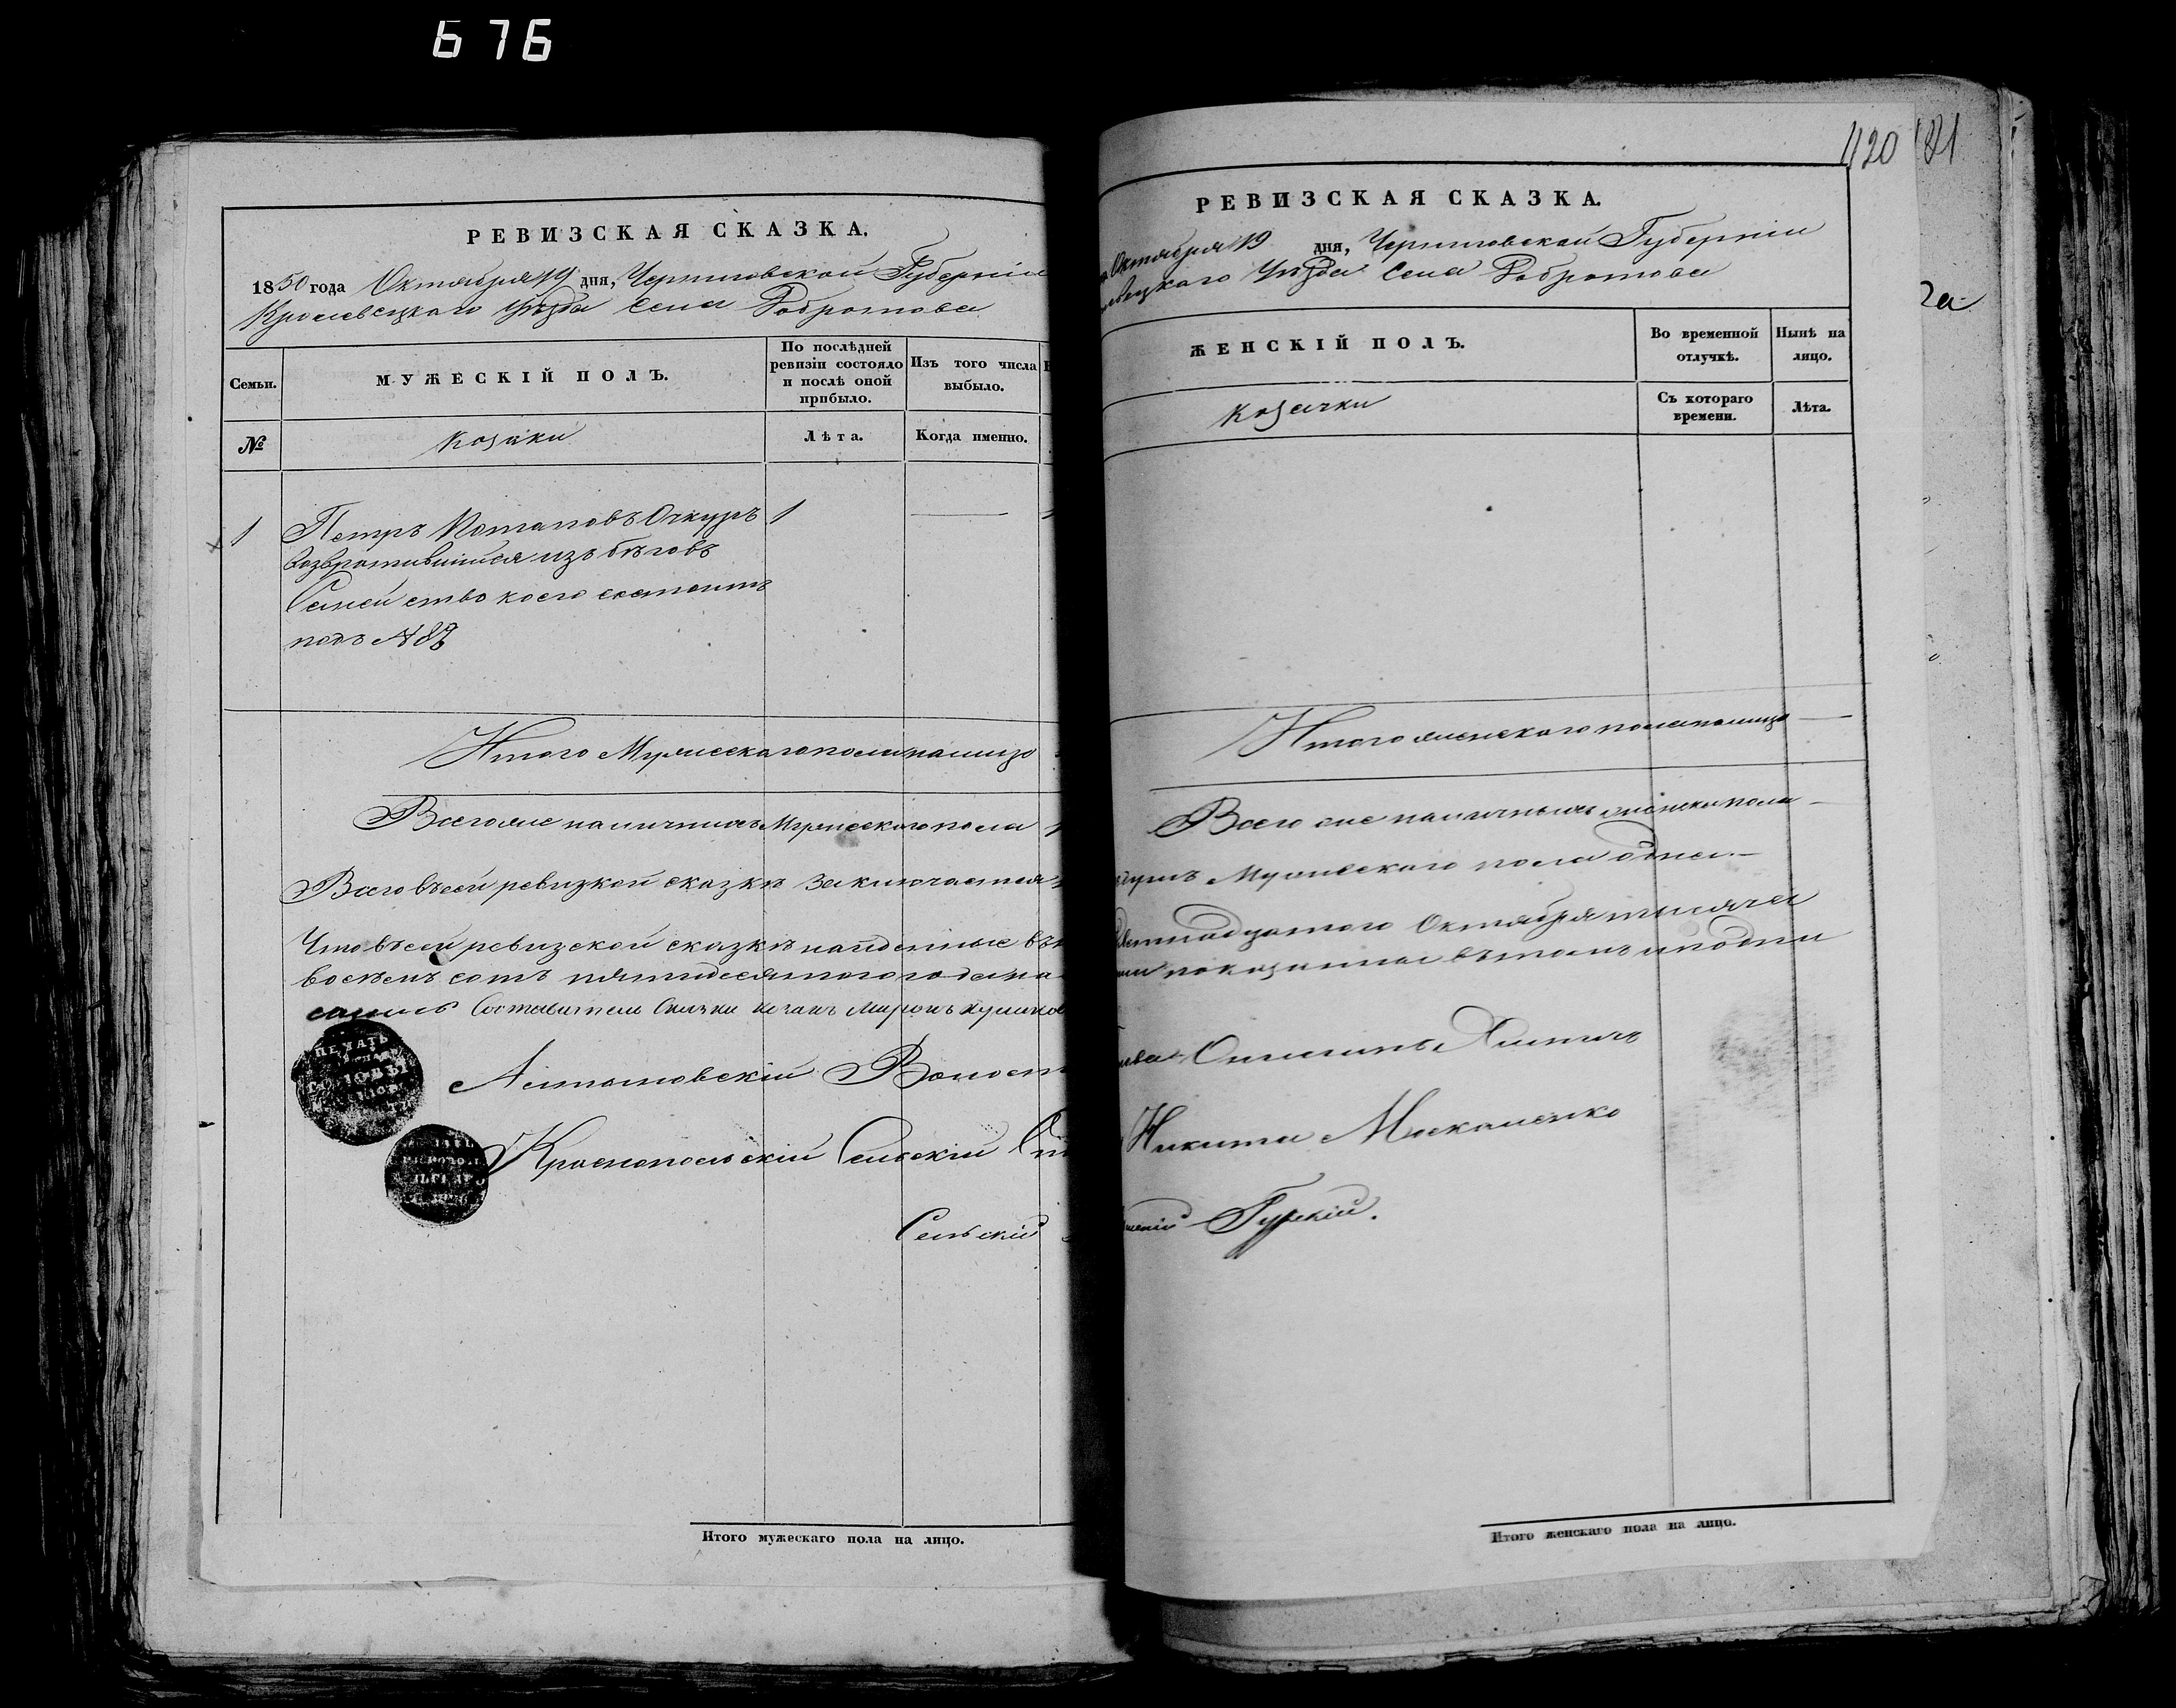 676
РЕВИЗСКАЯ СКАЗКА.
1850 года Октября 19 дня, Черниговской Губерніи
Кролевецкаго Уѣзда Села Добротова
Семьи.
МУЖЕСКІЙ ПОЛЪ.
По послѣдней ревизіи состояло и послѣ оной прибыло.
Изъ того числа выбыло.
№
Козаки
Лѣта.
Когда именно.
1 Петръ Потаповъ Очкуръ 1
возвратившійся изъ бѣговъ
Семейство коего состоитъ
подъ № 87
Итого Мужескаго пола налицо
Всего же наличныхъ Мужескаго пола 1
Всего въ сей ревизкой сказкѣ заключается
Что въ сей ревизской сказкѣ найденные въ
восемъ сотъ пятидесятого года
Составитель Сказки козакъ Миронъ
ПЕЧАТЬ
Волост
Краснопольскій Сельскій
Сельскій
420 181
РЕВИЗСКАЯ СКАЗКА.
Октября 19 дня, Черниговской Губерніи
евецкаго Уѣзда Села Добротова
ЖЕНСКІЙ ПОЛЪ.
Во временной отлучкѣ.
Нынѣ на лицо.
Козачки
Съ котораго времени.
Лѣта.
Итого женскаго пола налицо
Всего же наличныхъ женска пола
Мужескаго пола одна
Октября тысяча
показанное въ томъ и подпи
Никита Москаленко
Гурскій.
Итого мужескаго пола на лицо.
Итого женскаго пола на лицо.